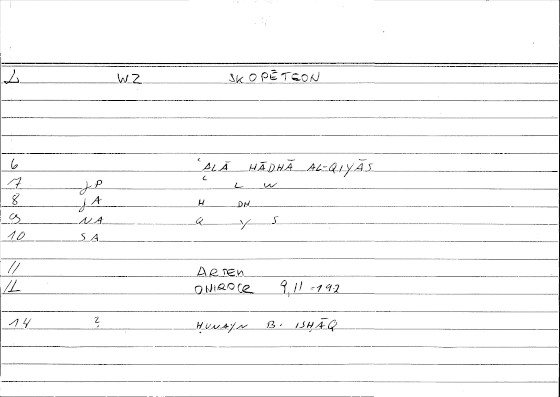 1 WZ SKOPĒTEON
6 ʿALĀ HĀDHĀ AL-QIYĀS
7 JP ʿ L W
8 JA H DH
9 NA Q Y S
10 SA
11 ARTEM
12 ONIROCR 9,11-192
14 2 ḤUNAYN B. ISḤĀQ